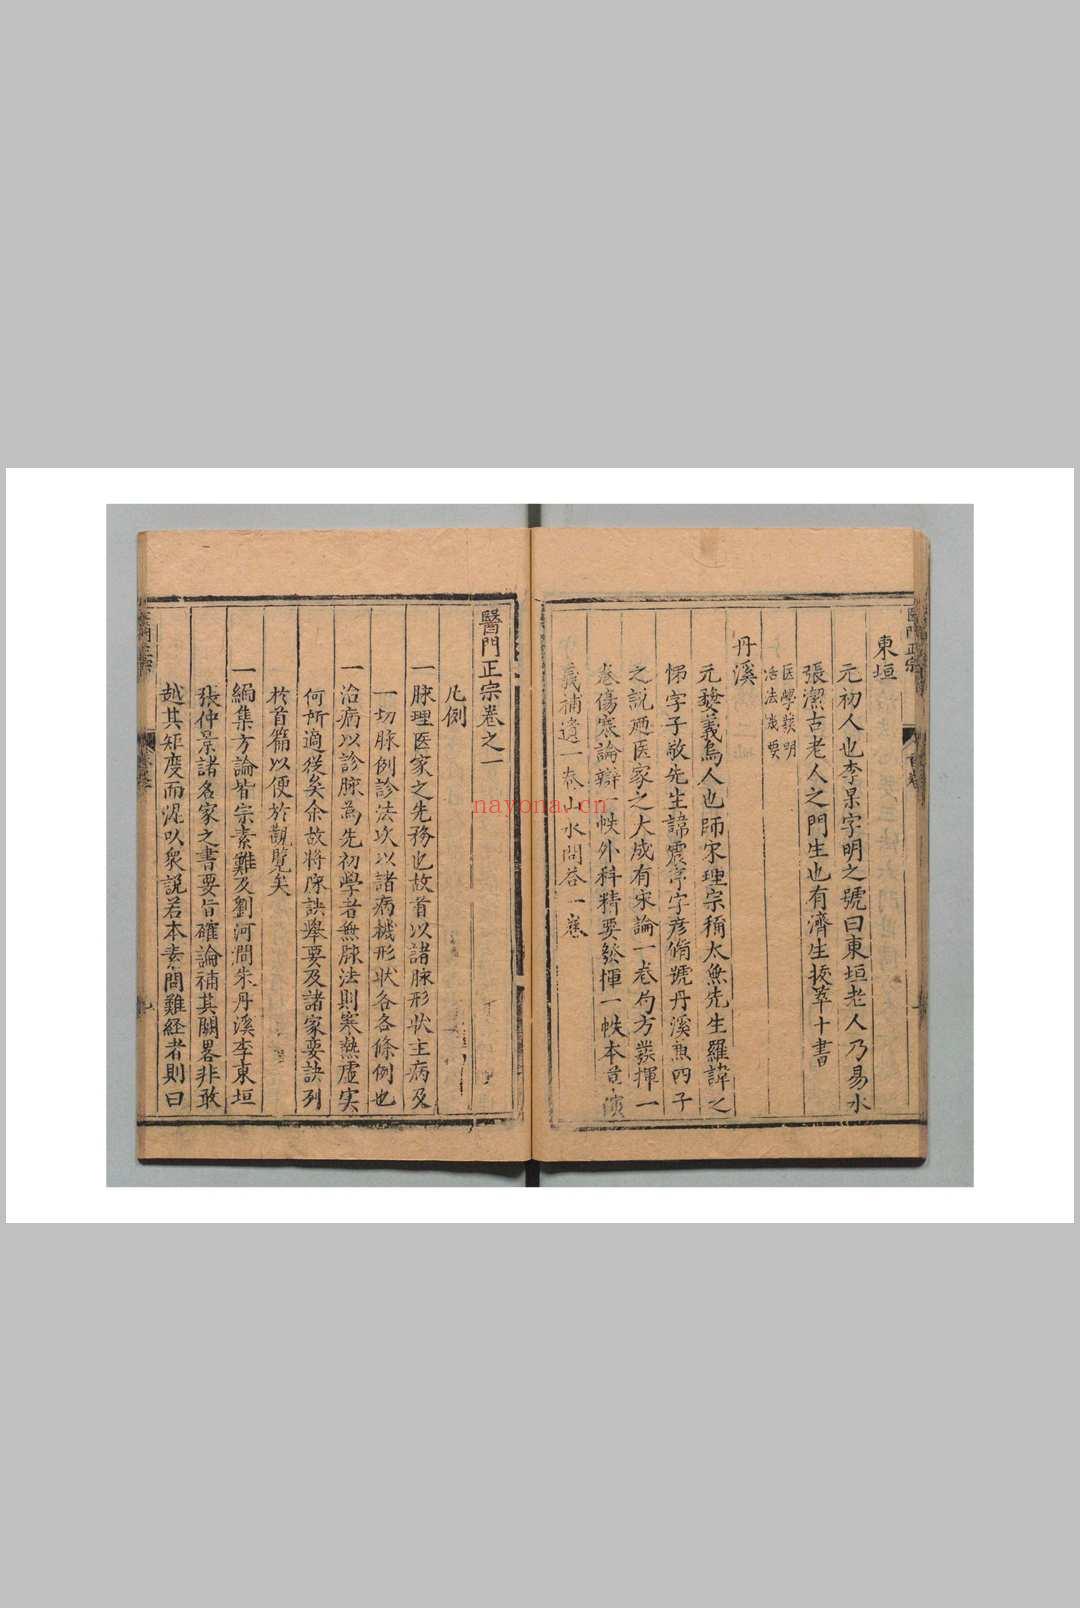 東垣
元初人也李杲字明之號曰東垣老人乃易水
張潔古老人之門生也有濟生拔萃十書
医學發明
活法歲要
丹溪
元婺義烏人也師宋理宗稱太無先生羅諱之
悌字子敬先生諱震亨字彦脩號丹溪兼四子
之說廼医家之大成有宋論一卷局方發揮一
卷傷寒論辯一帙外科精要發揮一帙本草演
義補遺一卷山水問荅一卷
醫門正宗
醫門正宗卷之一
凡例
一脉理医家之先務也故首以諸脉形狀主病及
一切脉例診法次以諸病機形狀各各條例也
一治病以診脉為先初學者無脉法則寒熱虛实
何所適從矣余故將脉訣舉要及諸家要訣列
於首篇以便於觀覽矣
一編集方論皆宗素難及劉河澗朱丹溪李東垣
張仲景諸名家之書要旨確論補其闕畧非敢
越其矩度而混以衆說若本素問難経者則曰
nayona.cn